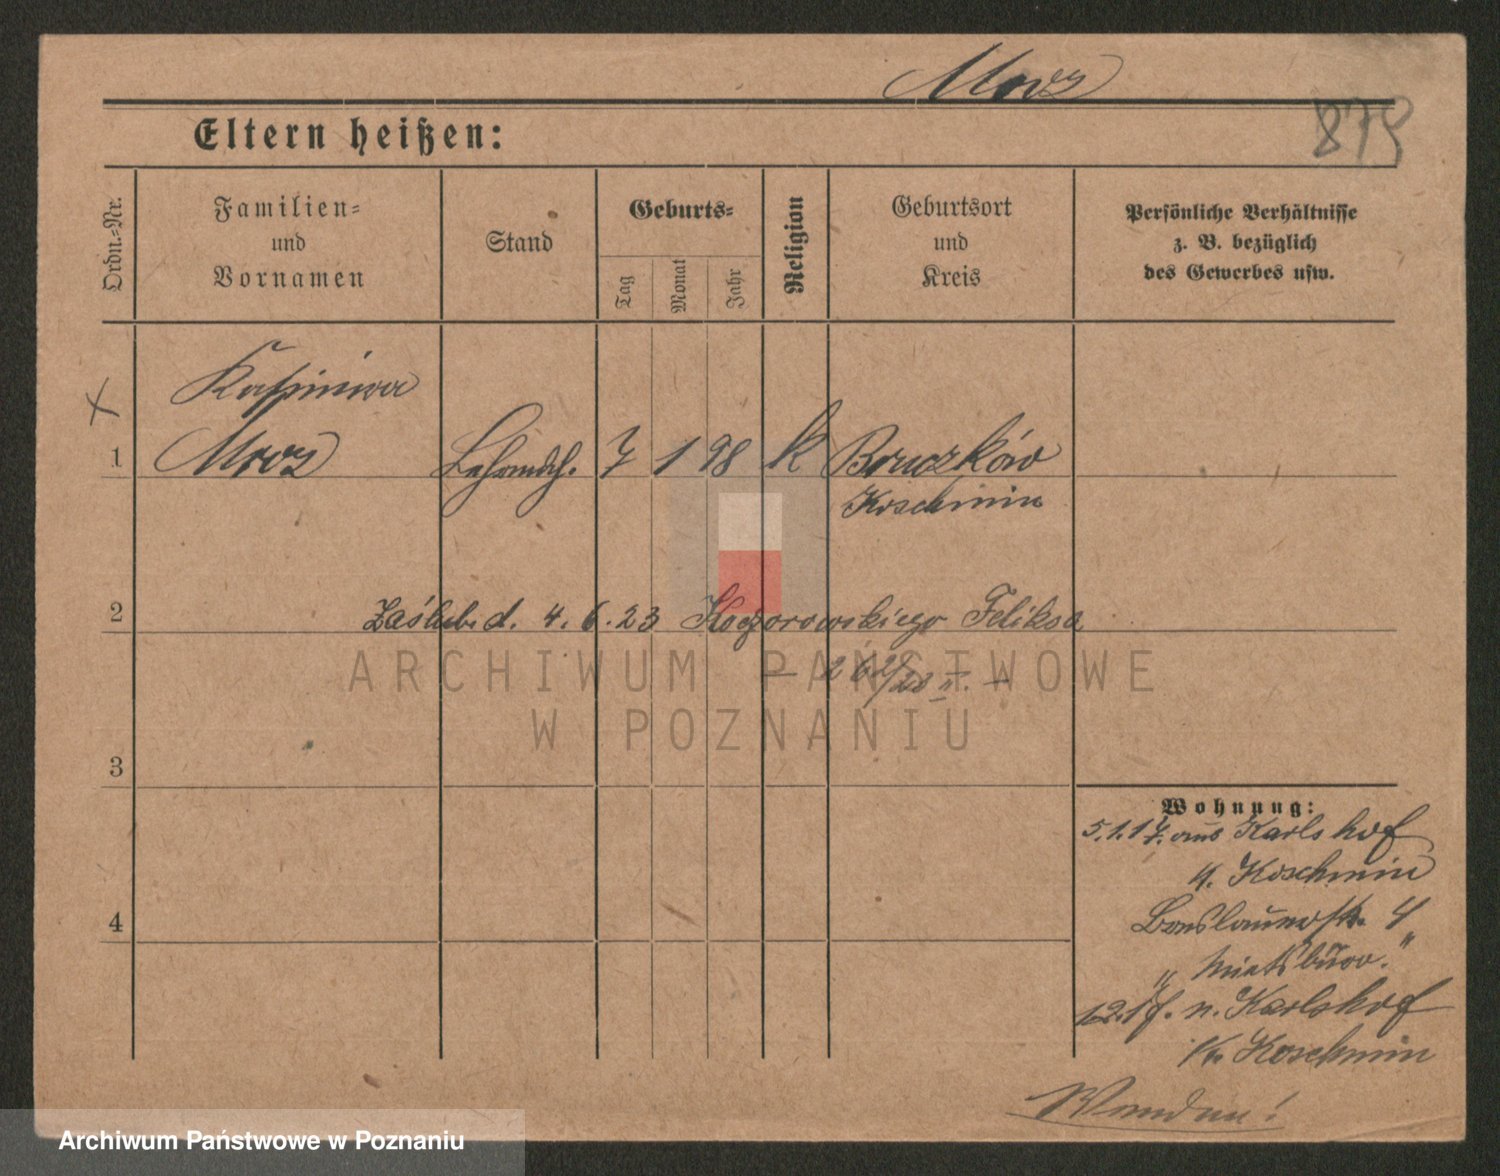 Mroz
879
Eltern heißen:
Ordn.=Nr.
Familien=
und
Vornamen
Stand
Geburts=
Tag
Monat
Jahr
Religion
Geburtsort
und
Kreis
Persönliche Verhältnisse
z. B. bezüglich
des Gewerbes usw.
1
Mroz
7 1 98 k Bruczków
Koschmin
2
Zaślub. d. 4. 6. 23 Koczorowskiego Feliksa
ARCHIWUM PAŃSTWOWE
W POZNANIU
3
Wohnung:
5.1.17. aus Karlshof
K. Koschmin
4
„Mietsbüro."
n. Karlshof
Kr. Koschmin
Wenden!
Archiwum Państwowe w Poznaniu